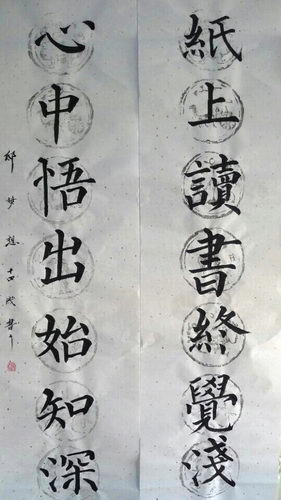 紙上讀書終覺淺
心中悟出始知深